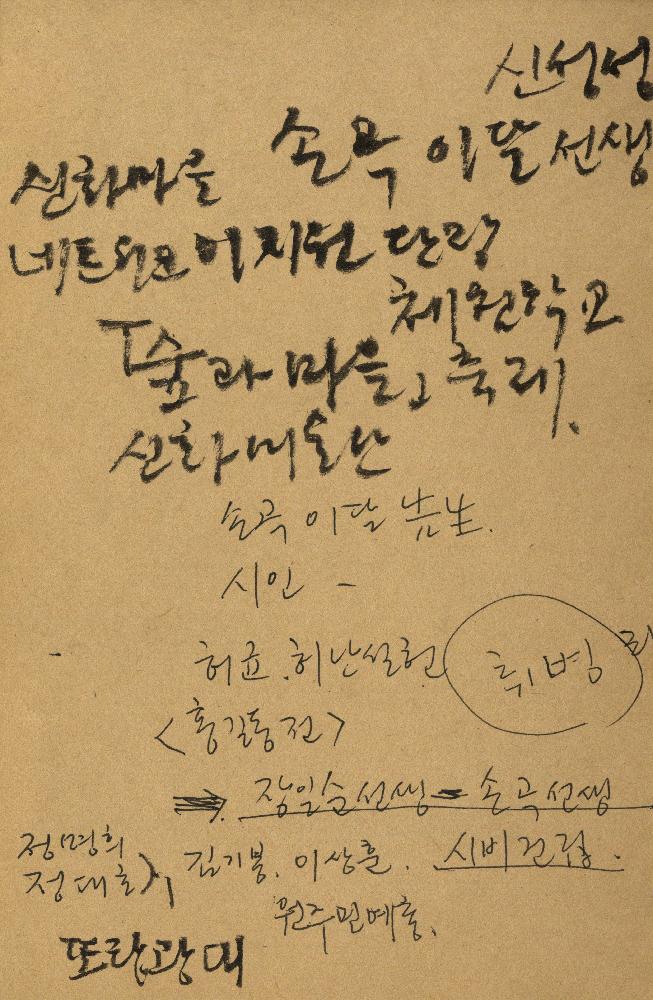 신성성
손곡 이달 선생
신화마을
네트워크 이지원 단장
체원학교
「숲과 마을」 축제.
신화미술관
손곡 이달 先生.
시인 -
허균. 허난설헌 취병
<홍길동전>
⇒ 장일순선생 - 손곡선생
정명희 김기봉. 이상훈. 시비건립.
정대호
원주민예총.
또랑광대